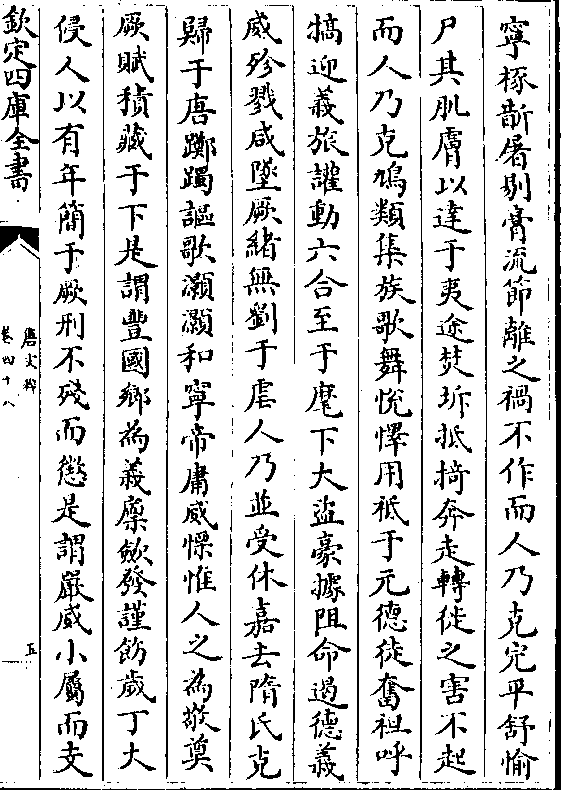 寧椓斮屠剔膏流節離之禍不作而人乃克完平舒愉
尸其肌膚以達于夷途焚坼抵掎奔走轉徙之害不起
而人乃克鳩類集族歌舞悅懌用祗于元德徒奮袒呼
犒迎義旅讙動六合至于麾下大盜豪據阻命遏德義
威殄戮咸墜厥緒無劉于虐人乃並受休嘉去隋氏克
歸于唐躑躅謳歌灝灝和寧帝庸威慄惟人之為敬奠
厥賦積藏于下是謂豐國鄉為義廩斂發謹飭歲丁大
侵人以有年簡于厥刑不殘而懲是謂嚴威小屬而支
欽定四庫全書
唐文粹
卷四十八
五